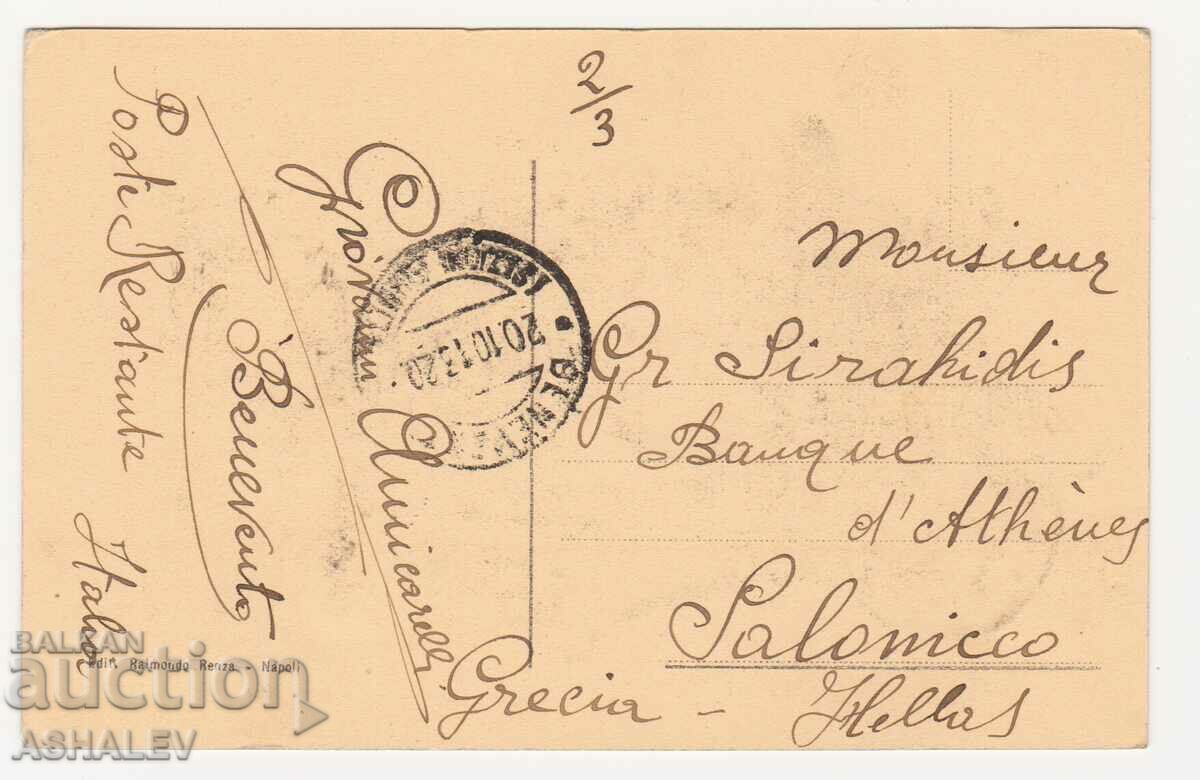 2/3
Monsieur
Gr Sirakidis
Banque
d'Athènes
Salonicco
Grecia - Hellas
Giovanni
Benevento
Poste Restante Italia
BENEVE
20.10.13.20
Edit. Raimondo Renza. - Napoli
BALKAN
auction
ASHALEV